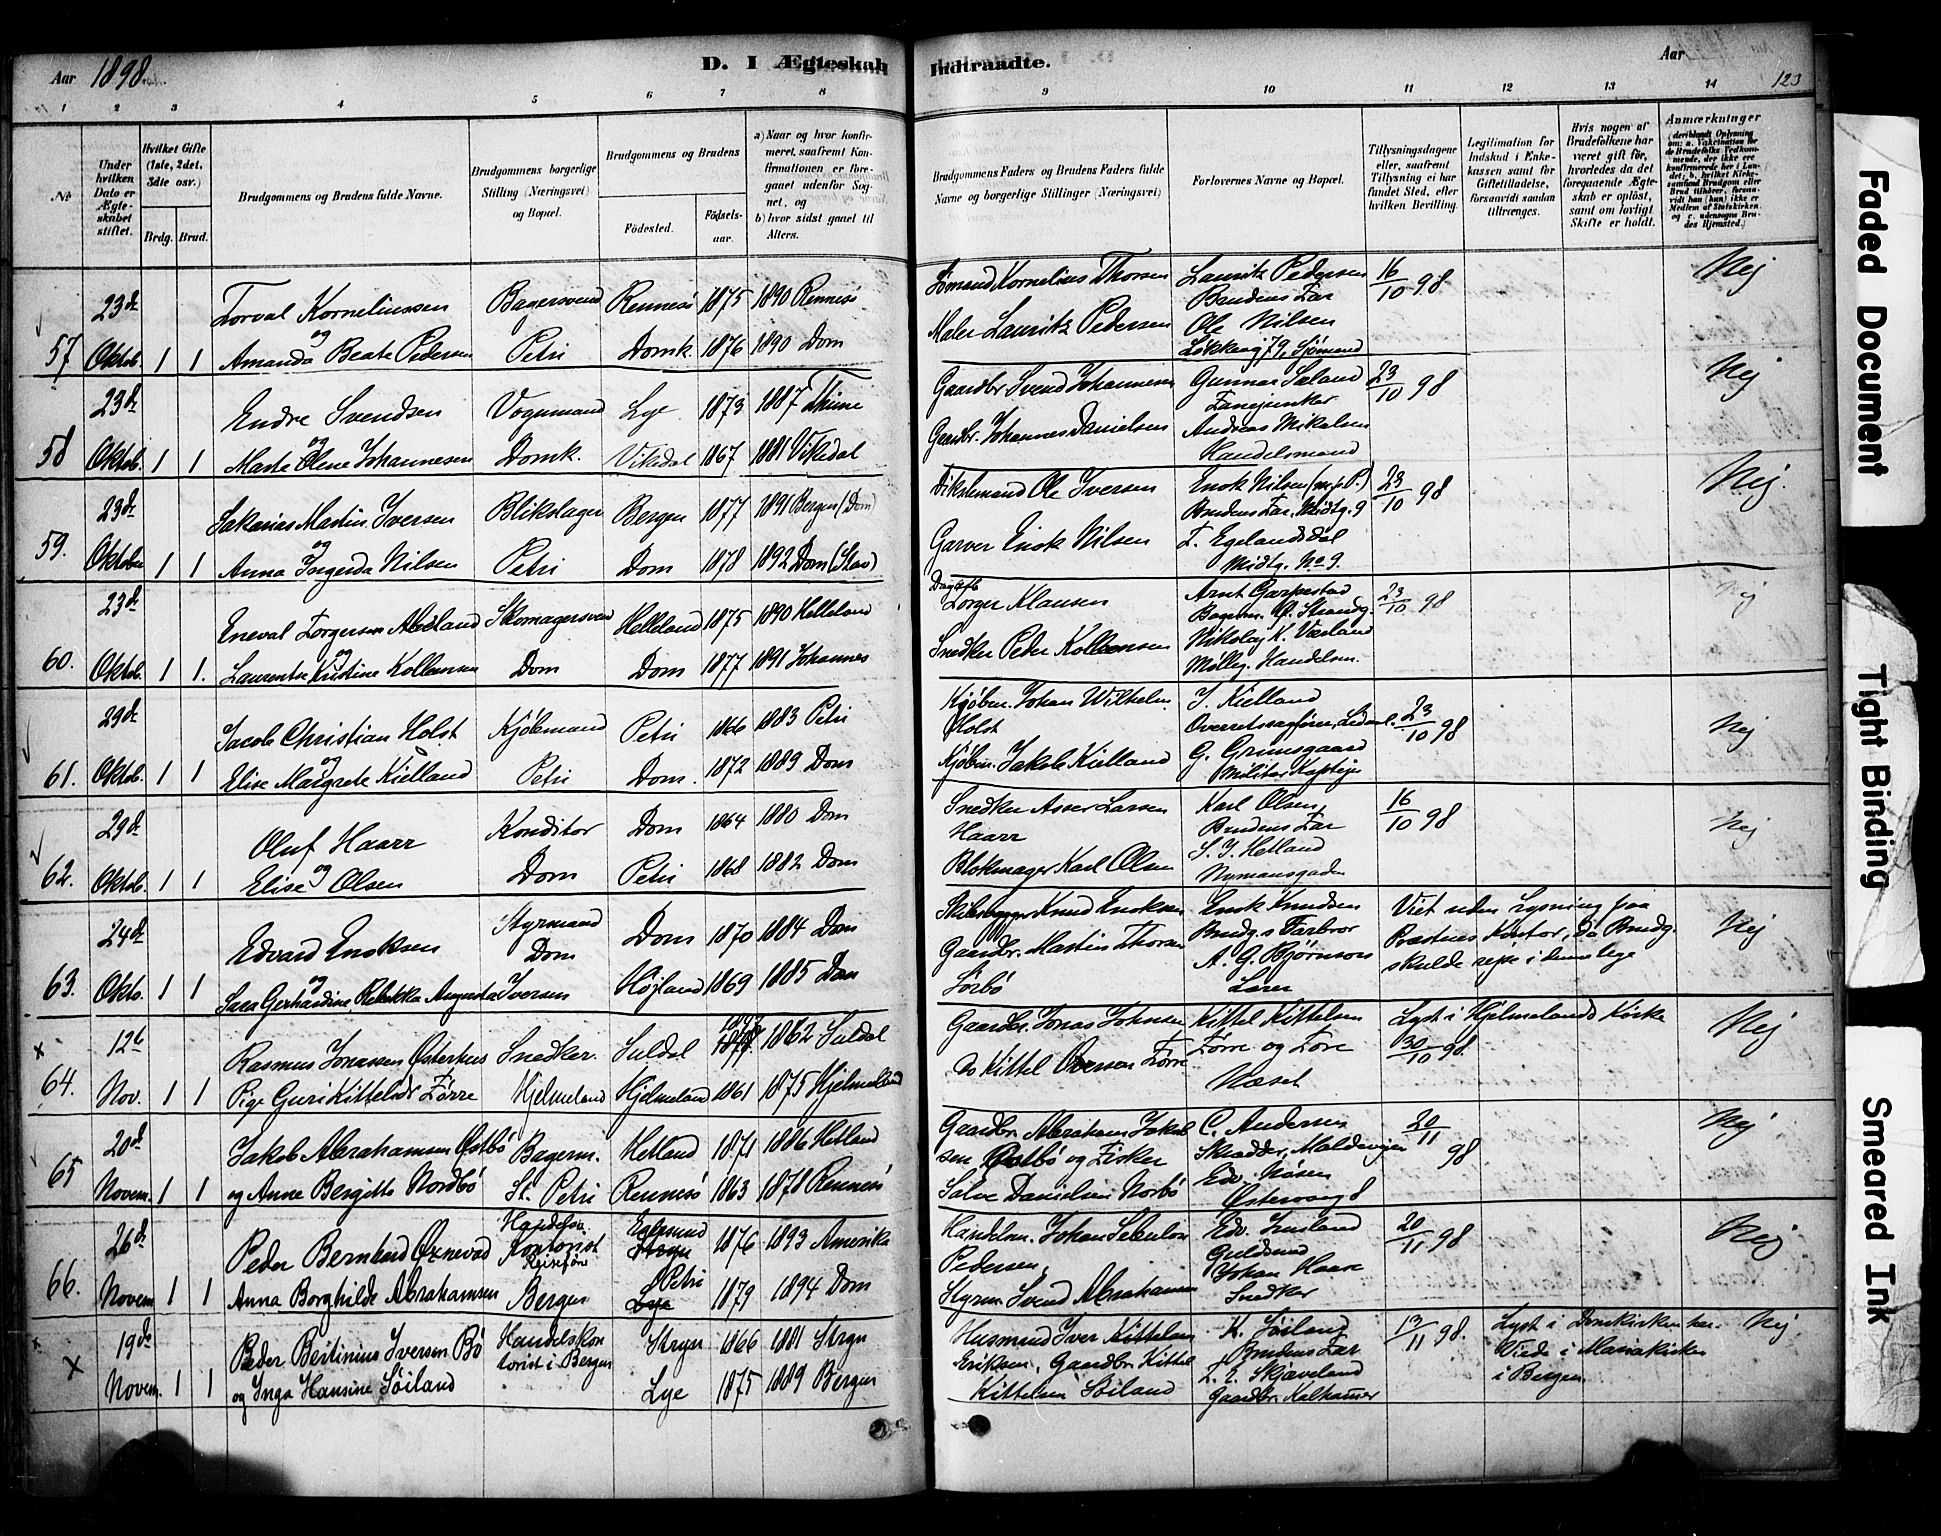 Aar 1898.
D. I Ægteskab Indtraadte.
Aar
123
1 2 3 4 5 6 7 8 9 10 11 12 13 14
No
Under hvilken Dato er Ægteskabet stiftet.
Hvilket Gifte (1ste, 2det, 3die osv.)
Brdg. Brud.
Brudgommens og Brudens fulde Navne.
Brudgommens borgerlige Stilling (Næringsvei) og Bopæl.
Brudgommens og Brudens
Fødested.
Fødselsaar.
a) Naar og hvor konfirmeret, saafremt Konfirmationen er foregaaet udenfor Sognet, og
b) hvor sidst gaaet til Alters.
Brudgommens Faders og Brudens Faders fulde Navne og borgerlige Stillinger (Næringsvei)
Forlovernes Navne og Bopæl.
Tillysningsdagene eller, saafremt Tillysning ei har fundet Sted, efter hvilken Bevilling.
Legitimation for Indskud i Enkekassen samt for Giftetilladelse, forsaavidt saadan tiltrænges.
Hvis nogen af Brudefolkene har været gift før, hvorledes da det foregaaende Ægteskab er opløst, samt om lovligt Skifte er holdt.
Anmærkninger
57 23de Oktob. 1 1
Torval Korneliussen Bagersvend Rennesø 1875 1890 Rennesø
og
Amanda Beate Pedersen Petri Domk. 1876 1890 Dom
Sømand Kornelius Thorsen
Maler Lauritz Pedersen
Lauritz Pedersen
Brudens Far
Ole Nilsen
Løkkevej 79, Sjømand
16/10 98
Nej
58 23de Oktob. 1 1
Endre Svendsen Vognmand Lye 1873 1887 Thime
og
Marte Olene Johannesen Domk. Vikedal 1867 1881 Vikedal
Gaardbr. Svend Johannesen
Gaardbr. Johannes Danielsen
Gunnar Saland
Fanejunker
Andreas Mikalsen
Handelsmand
23/10 98
Nej
59. 23de Oktober 1 1
Sakarias Martin Iversen Blikslager Bergen 1877 1891 Bergen (Dom)
og
Anna Ingerda Nilsen Petri Dom 1878 1892 Dom (Stav)
Ole Iversen
Garver Enok Nilsen
Enok Nilsen
Brudens Far, Midtg. 9
T. Egelandsdal
Midtg. No 9.
23/10 98
Nej.
60. 23de Oktob. 1 1.
Eneval Torgersen Skomagersvend Helleland 1875 1890 Helleland
og
Laurentse Kristine Kollansen Dom Dom 1877 1891 Johannes
Torger Klausen
Snedker Peder Kollansen
Arnt Garpestad
Nikolaj K. Værland
Mølleg. Handelsm.
23/10 98
Nej
61. 29de Oktob. 1 1
Jacob Christian Holst Kjøbmand Petri 1866 1883 Petri
og
Elise Margrete Kielland Petri Dom. 1872 1889 Dom
Kjøbm. Johan Wilhelm
Holst
Kjøbm. Jakob Kielland
J. Kielland
Overretssagfører,
G. Grimsgaard
Militær Kaptejn
23/10 98
Nej
62. 29de Oktob. 1 1
Oluf Haarr Konditor Dom 1864 1880 Dom
og
Elise Olsen Dom Petri 1868 1882 Dom
Snedker Asser Larsen
Haarr
Blokmager Karl Olsen
Karl Olsen,
Brudens Far
S. J. Hetland
Nymansgaden
16/10 98
Nej
63. 24de Okto. 1 1
Edvard Enoksen Styrmand Dom Dom 1870 1884 Dom
og
Sara Gerhardine Rebekka Augusta Iversen Højland 1869 1885 Dom
Knud Enoksen
Gaardbr. Martin Thorsen
Sørbø
Enok Knudsen
Brudg.s Farbror
A. G. Bjørnson
Lærer
Viet uden Lysning paa
Præstens Kontor, da Brudg.
skulde rejse
Nej
64. 12te Nov. 1 1
Rasmus Jonassen Østerhus Snedker. Suldal 1862 Suldal
Pige Guri Kittelsdr Førre Hjelmeland Hjelmeland 1861 1875 Hjelmeland
Gaardbr. Jonas Johnsen
Do Kittel Førre
Kittel Kittelsen
Førre og Tore
Næset
Lyst i Hjelmelands Kirke
30/10 98.
Nej
65 20de Novem. 1 1
Jakob Abrahamsen Østbø Bagerm. Hetland 1871 1886 Hetland
og Anne Bergitte Nordbø St. Petri Rennesø 1863 1878 Rennesø
Gaardbr. Abraham Jakobsen
Østbø og Fisker
Salve Danielsen Norbø
C. Andersen
Skrædder,
Østervaag 8
20/11 98
Nej
66. 26de Novem 1 1
Peder Bernhard Øxnevad Handelsr. Kontorist Egersund 1876 1893 Amerika
Anna Borghilde Abrahamsen Bergen Petri 1879 1894 Dom
Handelsm. Johan
Pedersen,
Styrm. Svend Abrahamsen
Guldsmed
Johan Haare
Snedker
20/11 98
Nej
19de Novem. 1 1
Peder Bertinius Iversen Bø Handelskontorist i Bergen Stryn 1866 1881 Stryn
og Inga Hansine Søiland Lye 1875 1889 Bergen
Husmand Iver Kittelsen
Eriksen, Gaardbr. Kittel
Kittelsen Søiland
K. Søiland
Brudens Far
Skjæveland
Gaardbr. Kalhammer
13/11 98.
Lyst i Domkirken her.
Viede i Mariakirken
i Bergen
Nej
Faded Document
Tight Binding
Smeared Ink